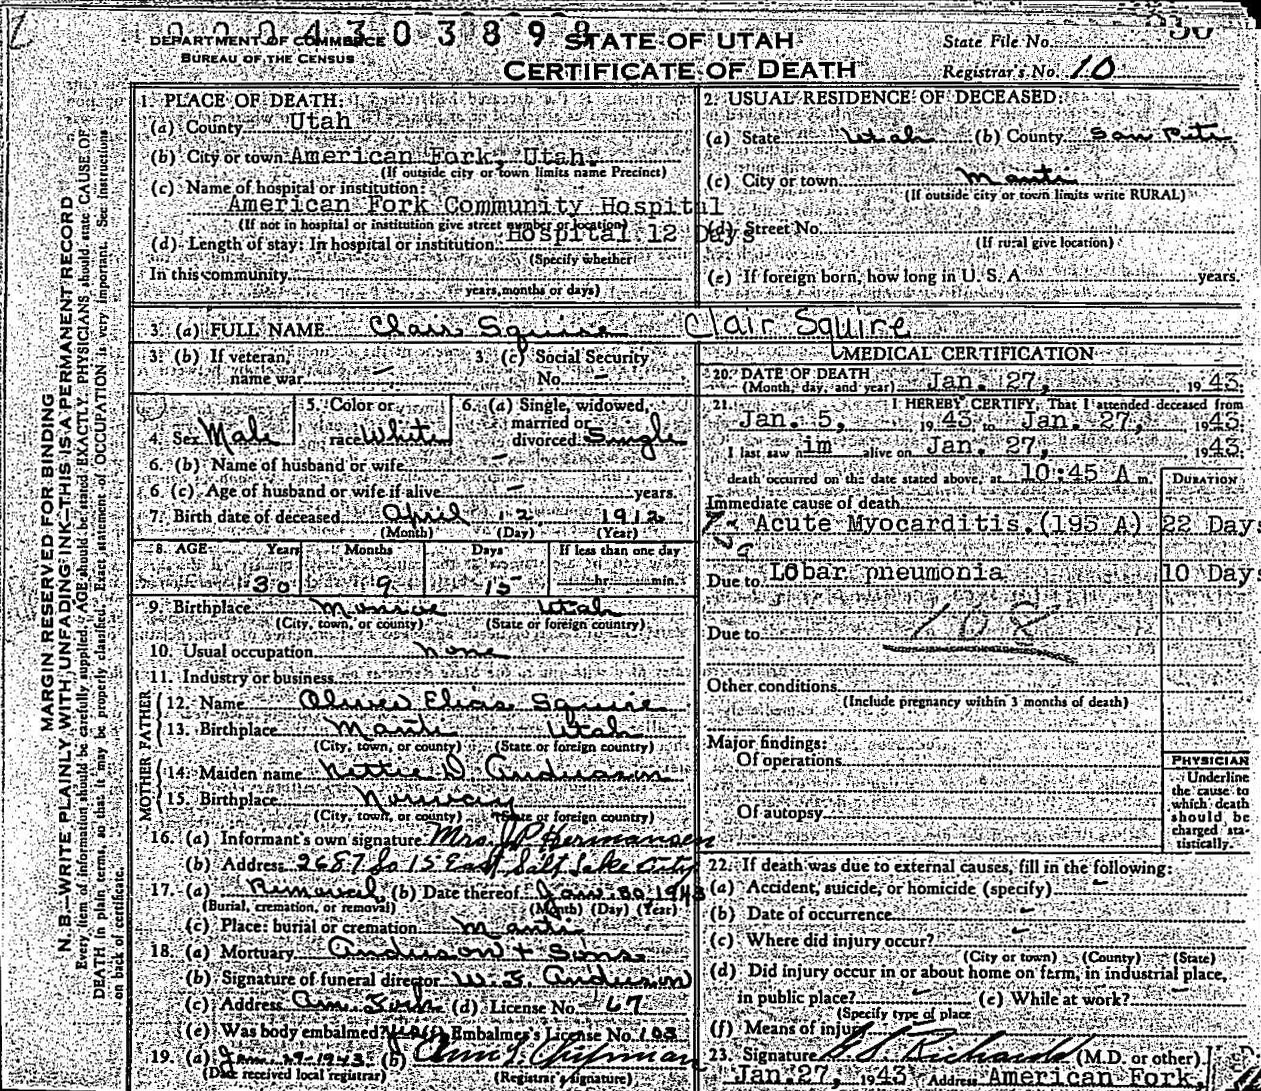 0004303898
DEPARTMENT OF COMMERCE
BUREAU OF THE CENSUS
STATE OF UTAH
CERTIFICATE OF DEATH
State File No.
Registrar's No. 10
MARGIN RESERVED FOR BINDING
N. B.—WRITE PLAINLY WITH UNFADING INK—THIS IS A PERMANENT RECORD
Every item of information should be carefully supplied. AGE should be stated EXACTLY. PHYSICIANS should state CAUSE OF
DEATH in plain terms, so that it may be properly classified. Exact statement of OCCUPATION is very important. See instructions
on back of certificate.
1. PLACE OF DEATH:
(a) County Utah
(b) City or town American Fork, Utah.
(If outside city or town limits name Precinct)
(c) Name of hospital or institution:
American Fork Community Hospital
(If not in hospital or institution give street number or location)
(d) Length of stay: In hospital or institution Hospital 12 Days
(Specify whether
In this community
years, months or days)
2. USUAL RESIDENCE OF DECEASED:
(a) State Utah (b) County San Pete
(c) City or town Manti
(If outside city or town limits write RURAL)
(d) Street No.
(If rural give location)
(e) If foreign born, how long in U. S. A. years.
3. (a) FULL NAME Clair Squire Clair Squire
3. (b) If veteran, name war –
3. (c) Social Security No. –
4. Sex Male
5. Color or race White
6. (a) Single, widowed, married or divorced Single
6. (b) Name of husband or wife –
6 (c) Age of husband or wife if alive – years.
7. Birth date of deceased April 12 1912
(Month) (Day) (Year)
8. AGE Years Months Days If less than one day
30 9 15 hr. min.
9. Birthplace Monroe Utah
(City, town, or county) (State or foreign country)
10. Usual occupation none
11. Industry or business
FATHER
12. Name Oliver Elias Squire
13. Birthplace Manti Utah
(City, town, or county) (State or foreign country)
MOTHER
14. Maiden name Nettie D. Anderson
15. Birthplace Norway
(City, town, or county) (State or foreign country)
16. (a) Informant's own signature Mrs. J. P. Hermansen
(b) Address 2687 So 15 East Salt Lake City
17. (a) Removal (b) Date thereof Jan. 30, 1943
(Burial, cremation, or removal) (Month) (Day) (Year)
(c) Place: burial or cremation Manti
18. (a) Mortuary Anderson & Sons
(b) Signature of funeral director W. E. Anderson
(c) Address Am. Fork (d) License No. 67
(e) Was body embalmed? Yes Embalmer's License No. 103
19. (a) Jan. 29-1943 (b) Chipman
(Date received local registrar) (Registrar's signature)
MEDICAL CERTIFICATION
20. DATE OF DEATH
(Month, day, and year) Jan. 27, 1943.
21. I HEREBY CERTIFY, That I attended deceased from
Jan. 5, 1943 to Jan. 27, 1943.
I last saw h im alive on Jan. 27, 1943.
death occurred on the date stated above, at 10:45 A m.
DURATION
Immediate cause of death
Acute Myocarditis. (195 A) 22 Days
Due to Lobar pneumonia 10 Days
108
Due to
Other conditions
(Include pregnancy within 3 months of death)
Major findings:
Of operations
Of autopsy
PHYSICIAN
Underline
the cause to
which death
should be
charged sta-
tistically.
22. If death was due to external causes, fill in the following:
(a) Accident, suicide, or homicide (specify) –
(b) Date of occurrence –
(c) Where did injury occur? –
(City or town) (County) (State)
(d) Did injury occur in or about home on farm, in industrial place,
in public place? – (e) While at work? –
(Specify type of place
(f) Means of injury
23. Signature Richards (M.D. or other)
Jan. 27, 1943 Address American Fork